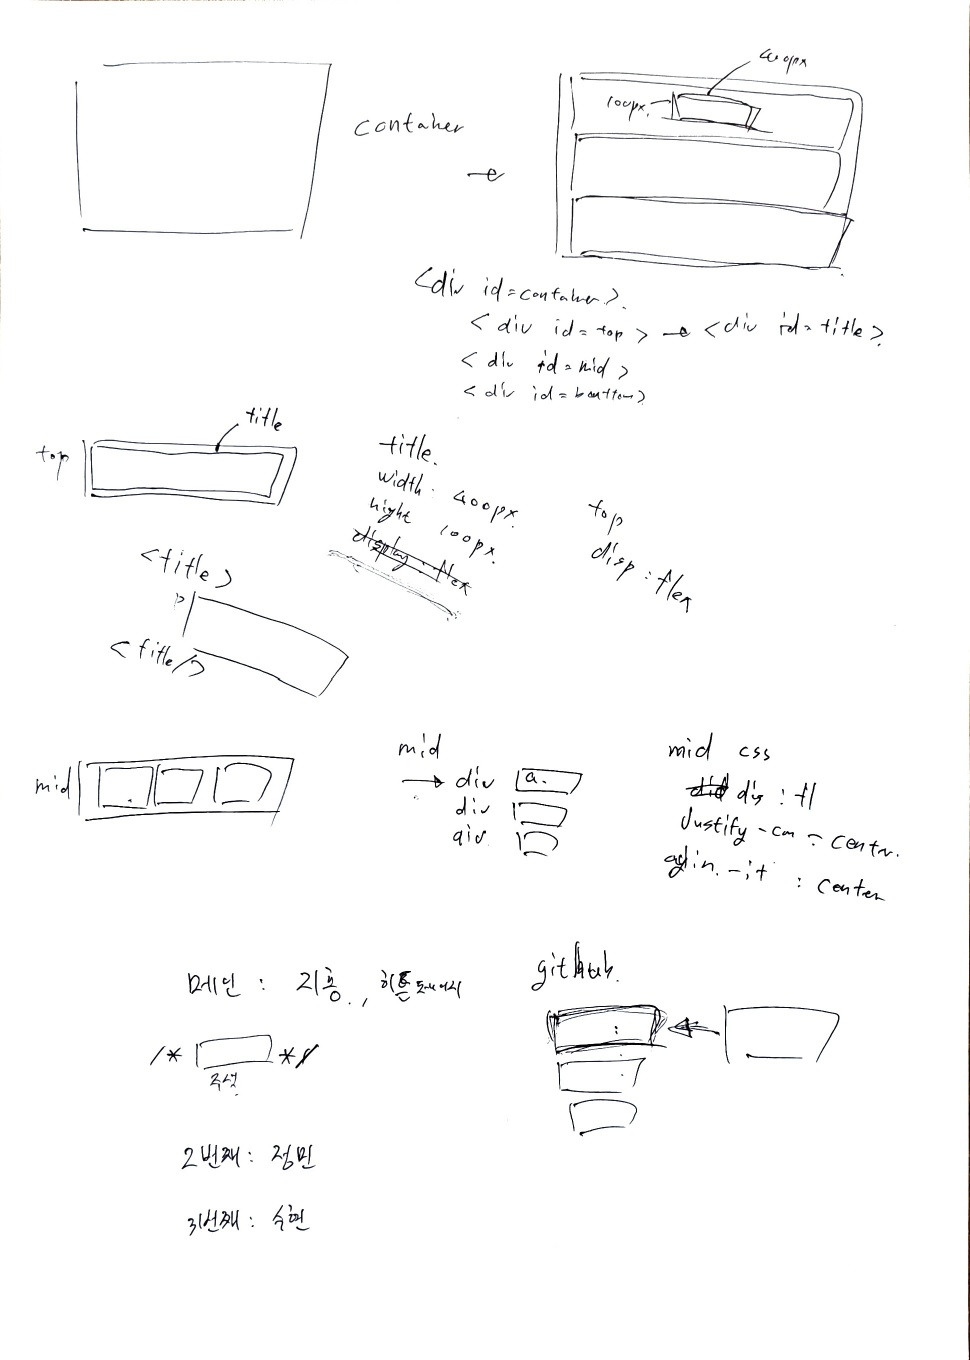 400px
100px.
container
<div id=container>.
<div id=top> → <div id=title>.
<div id=mid>
<div id=bouttom>
title
top
title.
width: 400px.
hight 100px.
display: flex
top
disp: flex
<title>
p
<title/>
mid
mid
→ div a.
div
div
mid css
dis: fl
Justify-con: centr.
: center
메인 : 지홍.,
github.
/* */
주석
2번째: 정민
3번째: 숙현